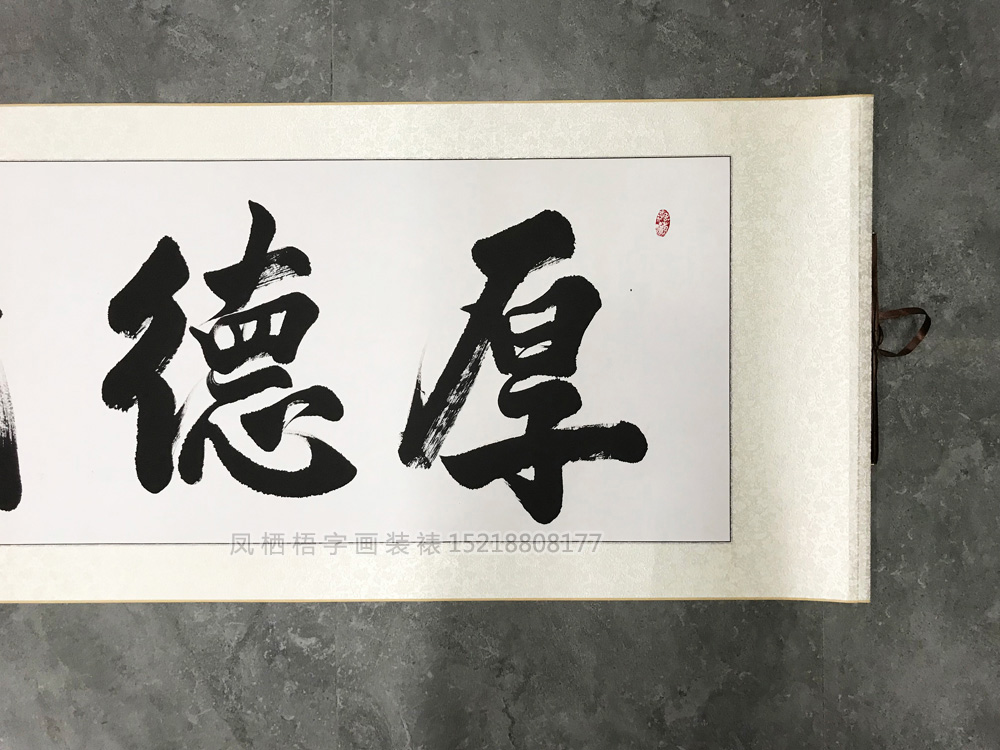 厚德
凤栖梧字画装裱 15218808177